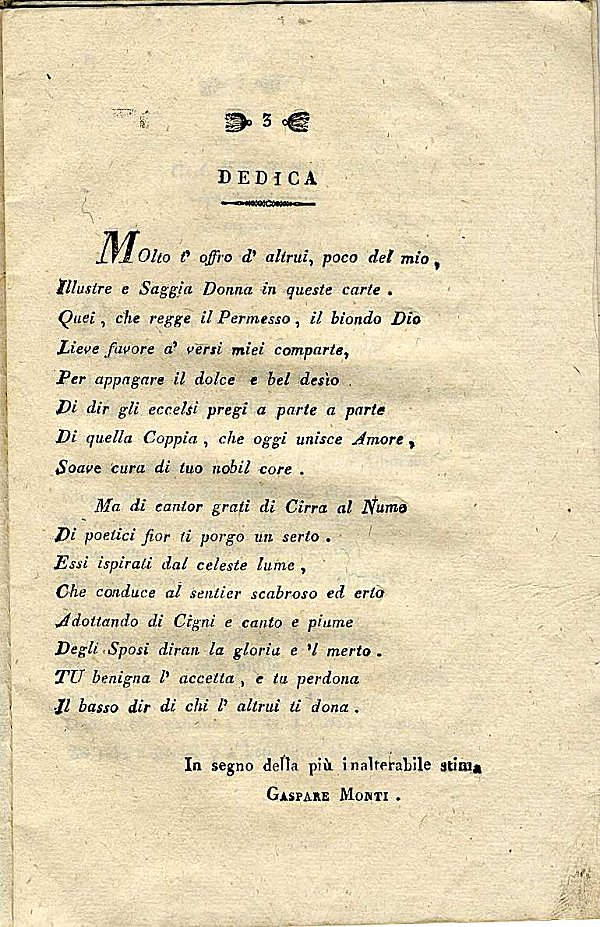 3
DEDICA
Molto t' offro d' altrui, poco del mio,
Illustre e Saggia Donna in queste carte.
Quei, che regge il Permesso, il biondo Dio
Lieve favore a' versi miei comparte,
Per appagare il dolce e bel desìo
Di dir gli eccelsi pregi a parte a parte
Di quella Coppia, che oggi unisce Amore,
Soave cura di tuo nobil core.
Ma di cantor grati di Cirra al Nume
Di poetici fior ti porgo un serto.
Essi ispirati dal celeste lume,
Che conduce al sentier scabroso ed erto
Adottando di Cigni e canto e piume
Degli Sposi diran la gloria e 'l merto.
TU benigna l' accetta, e tu perdona
Il basso dir di chi l' altrui ti dona.
In segno della più inalterabile stima
GASPARE MONTI.